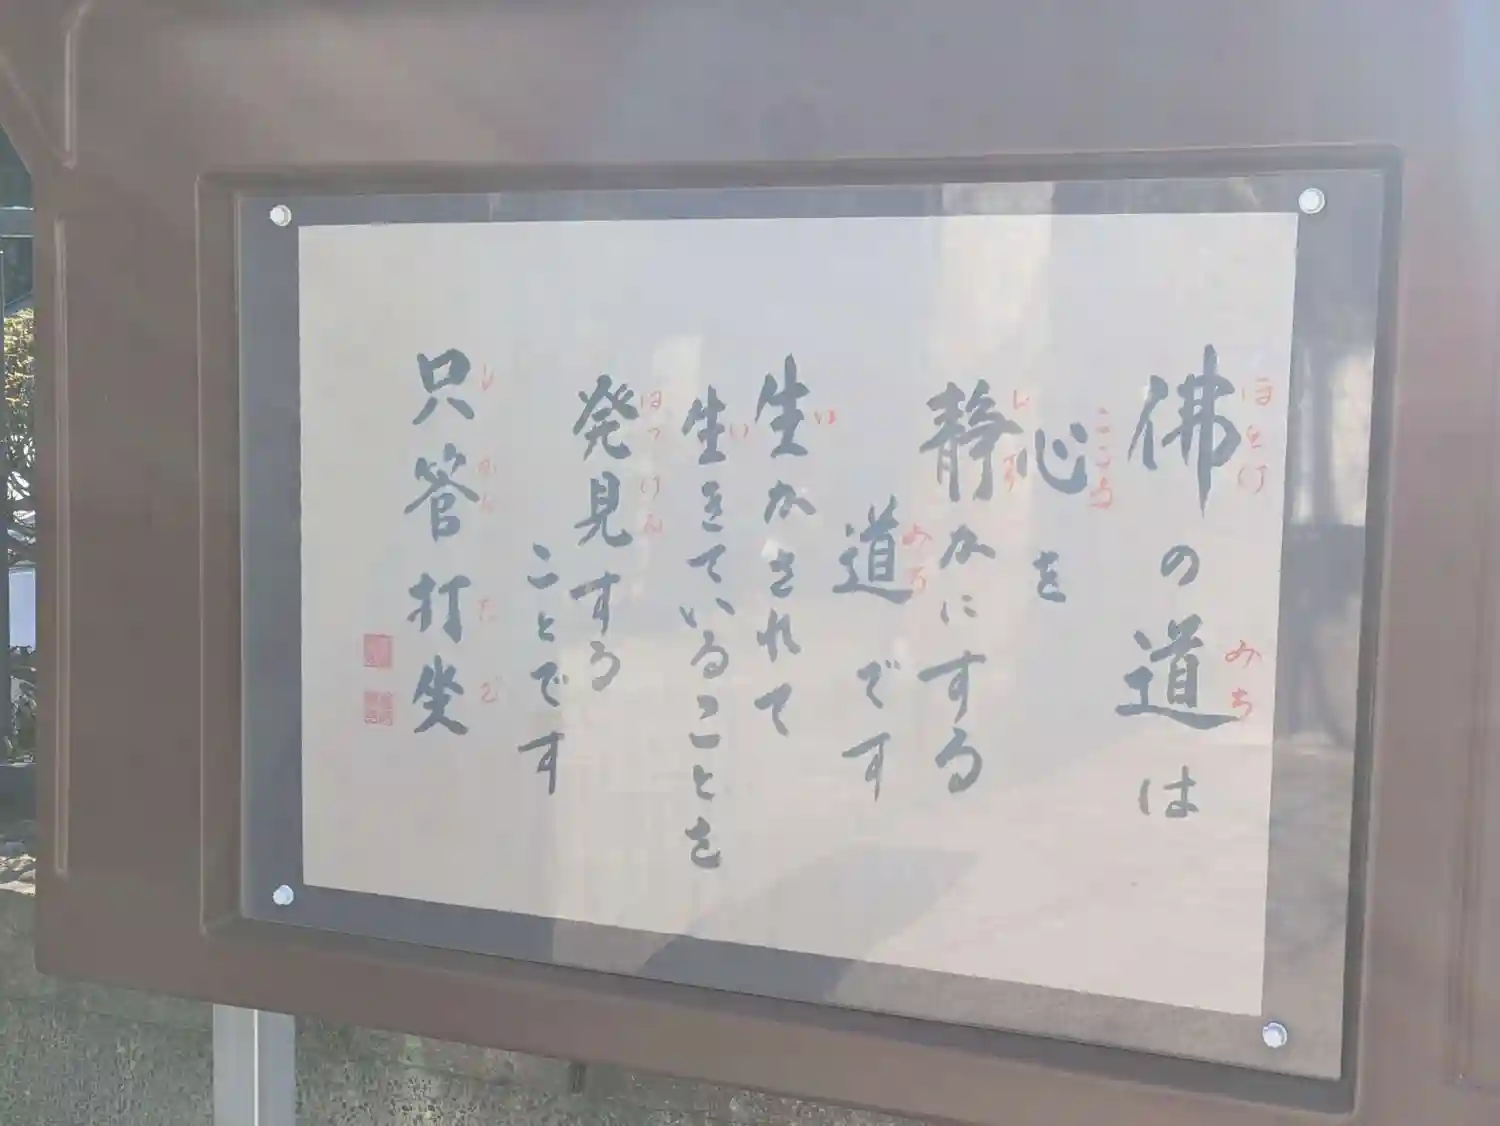 佛の道は
ほとけ
みち
心を
こころ
静かにする
しず
道です
みち
生かされて
い
生きていることを
い
発見する
はっけん
ことです
只管打坐
しかんたざ